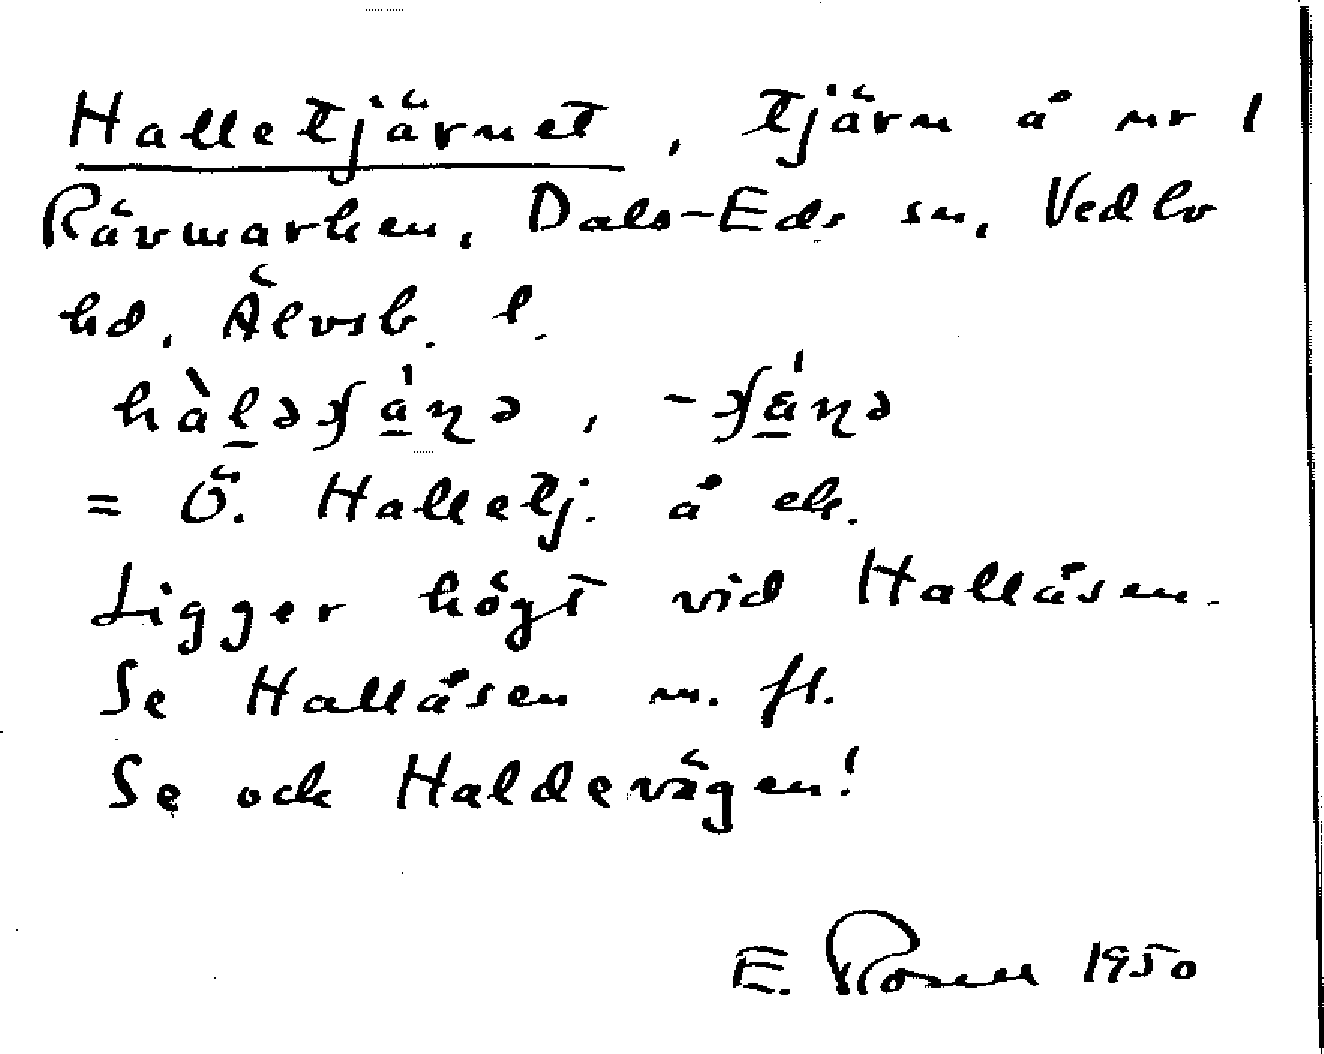 Halletjärnet, tjärn å nr 1
Rävmarken, Dals-Eds sn, Vedbo
hd, Älvsb. l.
= Ö. Halletj. å ek.
Ligger högt vid Hallåsen.
Se Hallåsen m. fl.
Se ock Haldevägen!
E. Rosell 1950